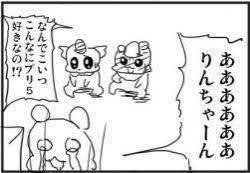 ああああああ
りんちゃーん
なんでこいつ
こんなにフリ5
好きなの!?